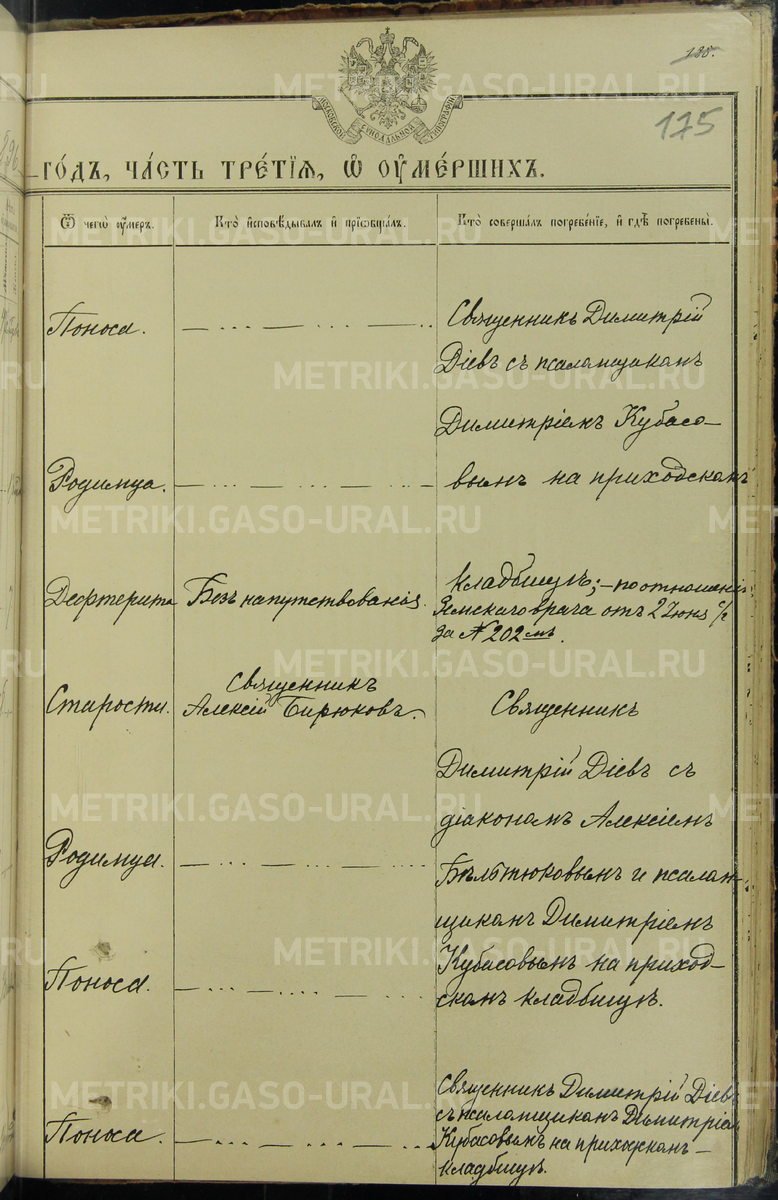 185.
175
МОСКОВСКОЙ СѶНОДАЛЬНОЙ ТИПОГРАФІИ
ГО́ДЪ, ЧА́СТЬ ТРЕ́ТЇѦ, Ѽ ОУМЕ́РШИХЪ.
Ѿ чегѡ̀ оу́меръ.
Кто̀ и҆сповѣ́дывалъ и҆ прїѡбща́лъ.
Кто̀ соверша́лъ погребе́нїе, и҆ гдѣ̀ погребены̀.
Поноса.
Священникъ Димитрій
Діевъ съ псаломщикомъ
Димитріемъ Кубасо-
Родимца.
вымъ на приходскомъ
Дефтерита
Безъ напутствованія.
кладбищѣ; - по отношенію
Земскаго врача отъ 2 Іюня с/г
за № 202 мъ.
Старости.
Священникъ
Алексій Бирюковъ.
Священникъ
Димитрій Діевъ съ
діакономъ Алексіемъ
Родимца.
Бѣлтюковымъ и псалом-
щикомъ Димитріемъ
Поноса.
Кубасовымъ на приход-
скомъ кладбищѣ.
Поноса.
Священникъ Димитрій Діевъ
съ псаломщикомъ Димитріемъ
Кубасовымъ на прихожкомъ-
кладбищѣ.
METRIKI.GASO-URAL.RU